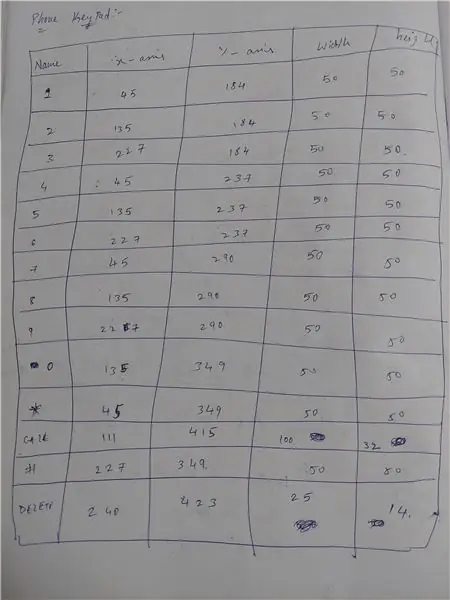 Phone KeyPad:-
Name x-axis y-axis width height
1 45 184 50 50
2 135 184 50 50
3 227 184 50 50
4 45 237 50 50
5 135 237 50 50
6 227 237 50 50
7 45 290 50 50
8 135 290 50 50
9 227 290 50 50
0 135 349 50 50
* 45 349 50 50
111 415 100 32
# 227 349 50 50
DELETE 240 423 25 14